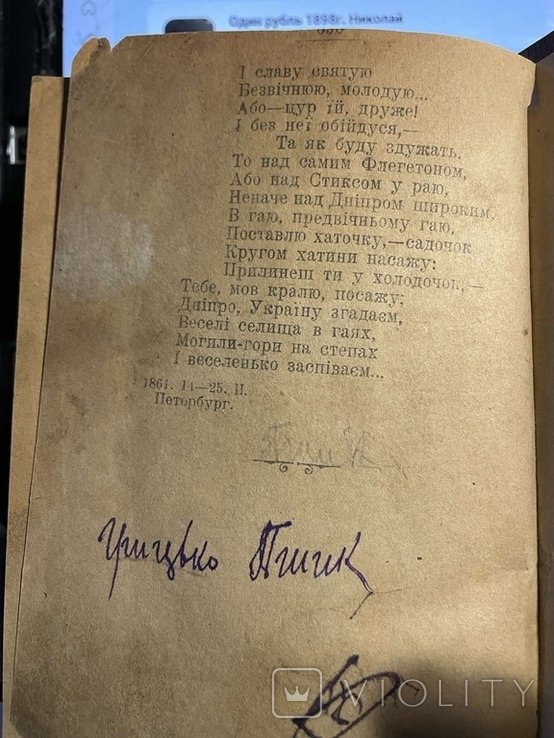 Один рубль 1898г. Николай
І славу святую
Безвічнюю, молодую...
Або—цур їй, друже!
І без неї обійдуся,—
Та як буду здужать,
То над самим Флегетоном,
Або над Стиксом у раю,
Неначе над Дніпром широким,
В гаю, предвічньому гаю,
Поставлю хаточку,—садочок
Кругом хатини насажу:
Прилинеш ти у холодочок,—
Тебе, мов кралю, посажу;
Дніпро, Україну згадаєм,
Веселі селища в гаях,
Могили-гори на степах
І веселенько заспіваєм...
1861. 14—25. II.
Петербург.
Грицько
VIOLITY